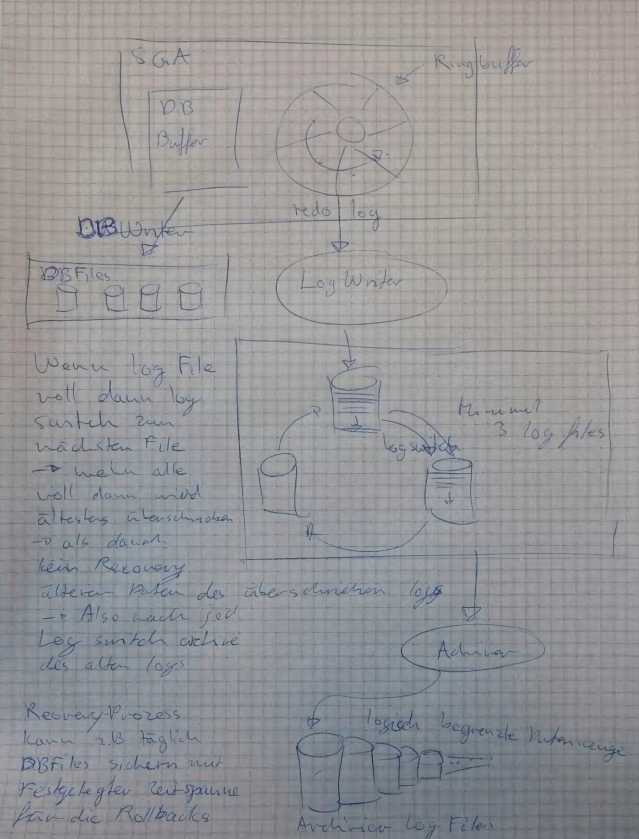 SGA
Ringbuffer
DB
Buffer
redo log
DB Writer
DB Files
Log Writer
Wenn log File
voll dann log
switch zum
nächsten File
→ wenn alle
voll dann wird
ältestes überschrieben
→ als dann
kein Recovery
älteren Daten des überschriebenen logs
→ Also nach jed.
Log switch archive
des alten logs
Minimal
3 log files
logswitch
Archiver
Recovery-Prozess
kann z.B täglich
DBFiles sichern mit
Festgelegter Zeitspanne
für die Rollbacks
logisch begrenzte Datenmenge
Archivier Log Files